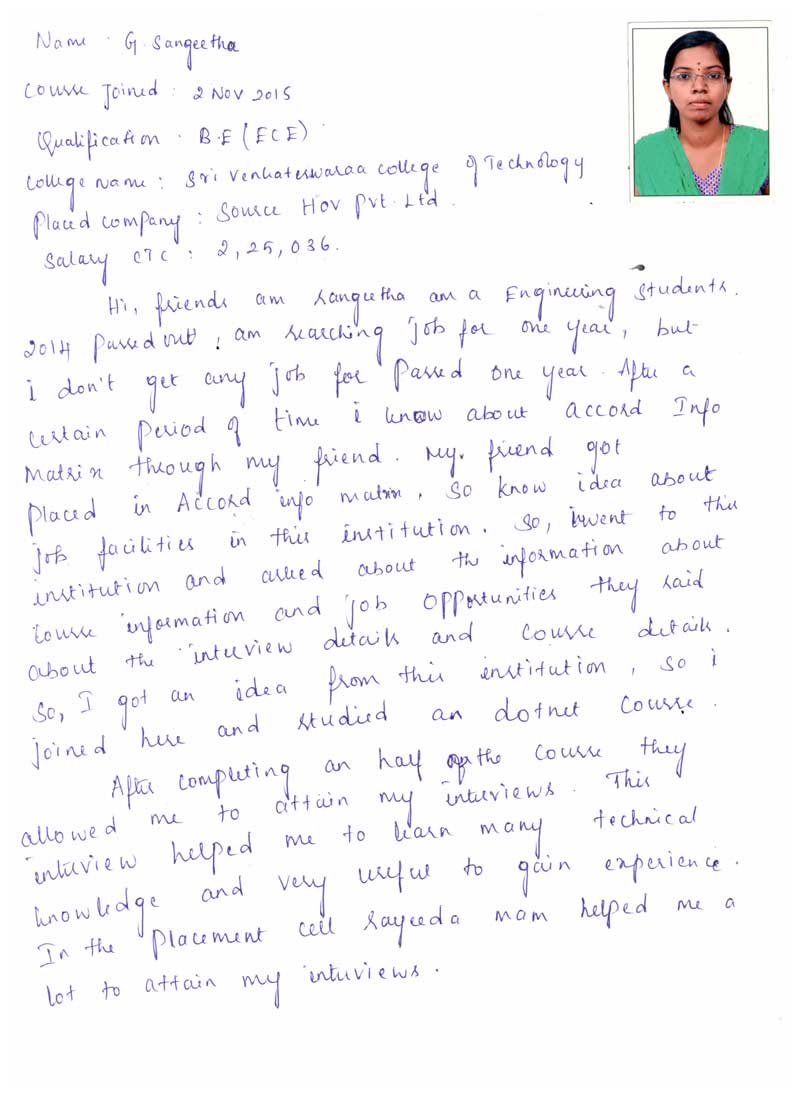 Name : G. Sangeetha
Course Joined : 2 Nov 2015
Qualification : B.E (ECE)
College Name : Sri Venkateswaraa College of Technology
Placed company : Source Hov Pvt. Ltd.
Salary CTC : 2,25,036.
Hi, friends am Sangeetha am a Engineering Students.
2014 Passed out, am searching job for one year, but
i don't get any job for Passed one year. After a
certain period of time i know about accord Info
Matrix through my friend. My friend got
placed in Accord info matrix, so know idea about
job facilities in this institution. So, i went to this
institution and asked about the information about
course information and job opportunities they said
about the interview details and course details.
So, I got an idea from this institution, so i
joined here and studied an dotnet course.
After completing an half of the course they
allowed me to attain my interviews. This
interview helped me to learn many technical
knowledge and very useful to gain experience.
In the placement cell sayeeda mam helped me a
lot to attain my interviews.